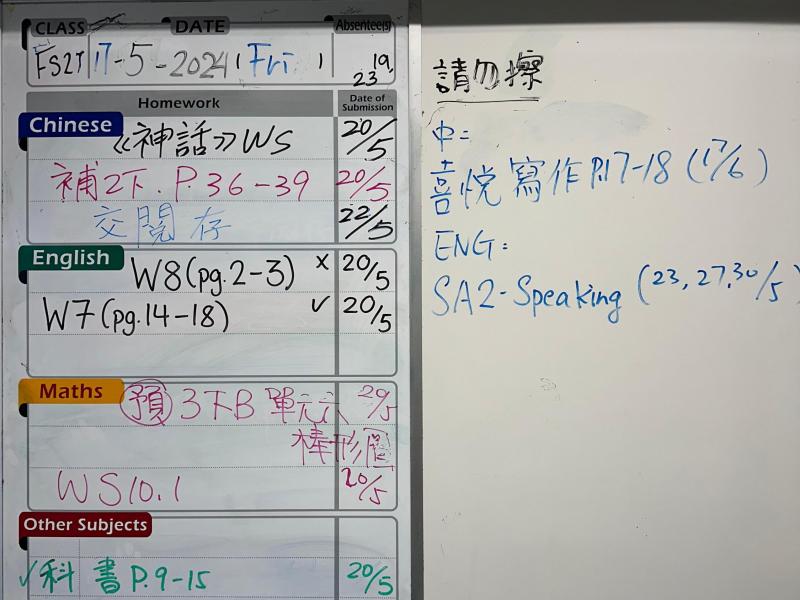 CLASS DATE Absentee(s)
17-5-2024 Fri 19,
23
Homework Date of Submission
Chinese 《神話》WS 20/5
補2下. P.36-39 20/5
交閱存 22/5
English W8(pg.2-3) × 20/5
W7(pg.14-18) ✓ 20/5
Maths 預 3下B 單元六 29/5
棒形圖
WS10.1 20/5
Other Subjects
✓科 書P.9-15 20/5
請勿擦
中:
喜悅寫作P.17-18 (17/6)
ENG:
SA2-Speaking (23, 27, 30/5)